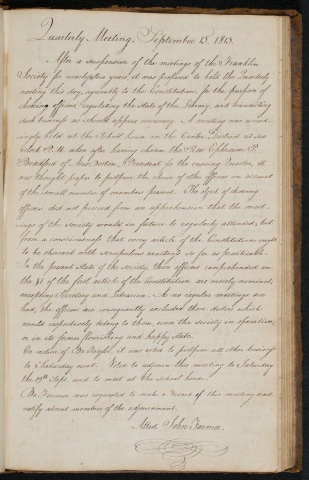 Quarterly Meeting. September 13. 1813.
After a suspension of the meetings of the Franklin
Society for nearly two years, it was proposed to hold the Quarterly
meeting this day, agreeably to the Constitution, for the purpose of
choosing officers, regulating the state of the Library, and transacting
such business as should appear necessary. A meeting was accord-
ingly held at the School house in the Center District at six
oclock P.M. when after having chosen the Rev Ephraim P.
Bradford of New Boston, President for the ensuing Quarter, it
was thought proper to postpone the choice of other officers on account
of the small number of members present. The object of choosing
officers did not proceed from an apprehension that the meet-
ings of the Society would in future be regularly attended, but
from a consciousness that every article of the Constitution ought
to be observed with scrupulous exactness so far as practicable.
In the present state of the society, those officers comprehended in
the of the first article of the Constitution are merely nominal,
excepting Secretary and Librarian. As no regular meetings are
had, the officers are consequently excluded those duties which
would respectively belong to them, were the society in operation,
or in its former flourishing and happy state.
On motion of it was voted to postpone all other business
to Saturday next. Voted to adjourn this meeting to Saturday
the 18th Sept. and to meet at the school house.
Mr Farmer was requested to make a record of this meeting and
notify absent members of the adjournment.
Attest John Farmer.